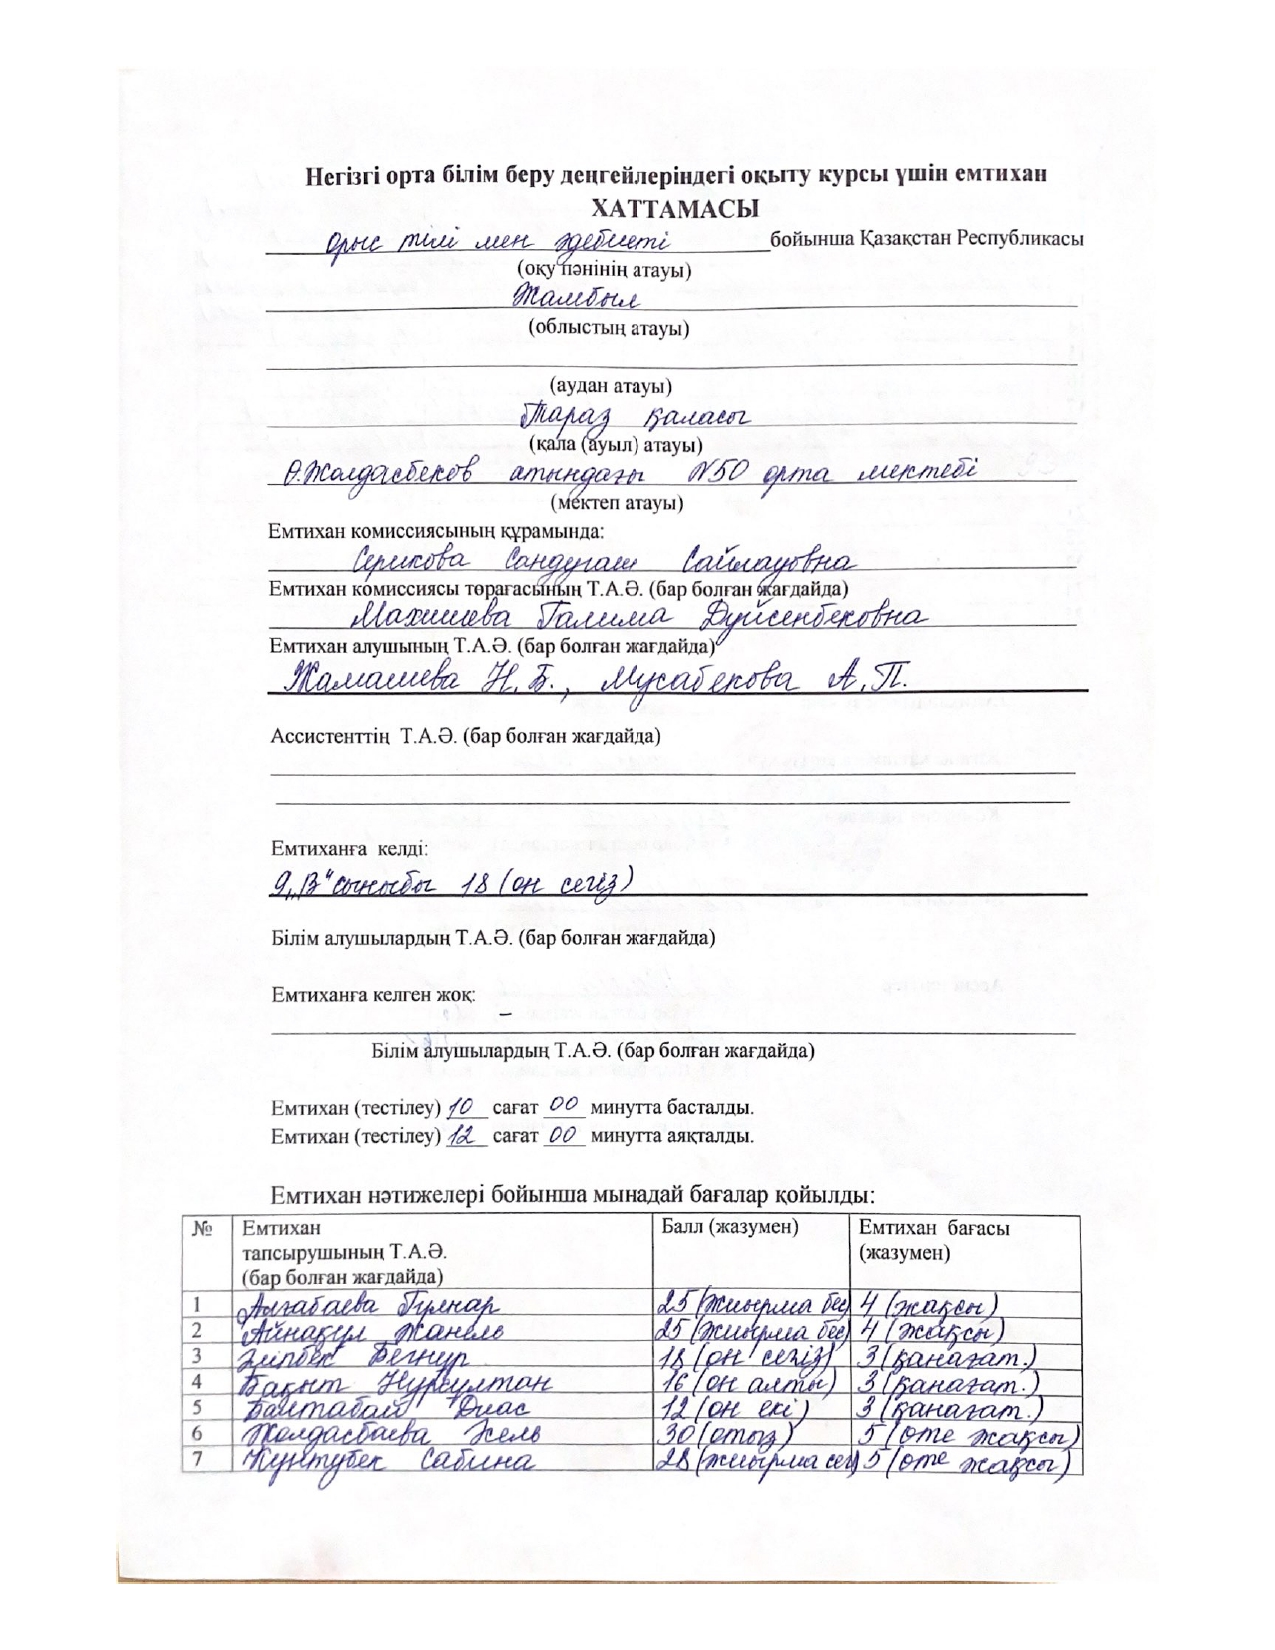 Негізгі орта білім беру деңгейлеріндегі оқыту курсы үшін емтихан
ХАТТАМАСЫ
Орыс тілі мен әдебиеті бойынша Қазақстан Республикасы
(оқу пәнінің атауы)
Жамбыл
(облыстың атауы)
(аудан атауы)
Тараз қаласы
(қала (ауыл) атауы)
Ө.Жолдасбеков атындағы №50 орта мектебі
(мектеп атауы)
Емтихан комиссиясының құрамында:
Серикова Сандугаш Сайлауовна
Емтихан комиссиясы төрағасының Т.А.Ә. (бар болған жағдайда)
Махишева Галима Дүйсенбековна
Емтихан алушының Т.А.Ә. (бар болған жағдайда)
Жамашева Н.Б., Мусабекова А.П.
Ассистенттің Т.А.Ә. (бар болған жағдайда)
Емтиханға келді:
9„В" сыныбы 18 (он сегіз)
Білім алушылардың Т.А.Ә. (бар болған жағдайда)
Емтиханға келген жоқ:
–
Білім алушылардың Т.А.Ә. (бар болған жағдайда)
Емтихан (тестілеу) 10 сағат 00 минутта басталды.
Емтихан (тестілеу) 12 сағат 00 минутта аяқталды.
Емтихан нәтижелері бойынша мынадай бағалар қойылды:
№ Емтихан тапсырушының Т.А.Ә. (бар болған жағдайда) Балл (жазумен) Емтихан бағасы (жазумен)
1 Гүлнар 25 (жиырма бес) 4 (жақсы)
2 Айнақұл Жанель 25 (жиырма бес) 4 (жақсы)
3 Бегнур 18 (он сегіз) 3 (қанағат.)
4 Бақыт Нурсултан 16 (он алты) 3 (қанағат.)
5 Диас 12 (он екі) 3 (қанағат.)
6 Жолдасбаева 30 (отыз) 5 (өте жақсы)
7 Күнтубек Сабина 28 (жиырма сег 5 (өте жақсы)